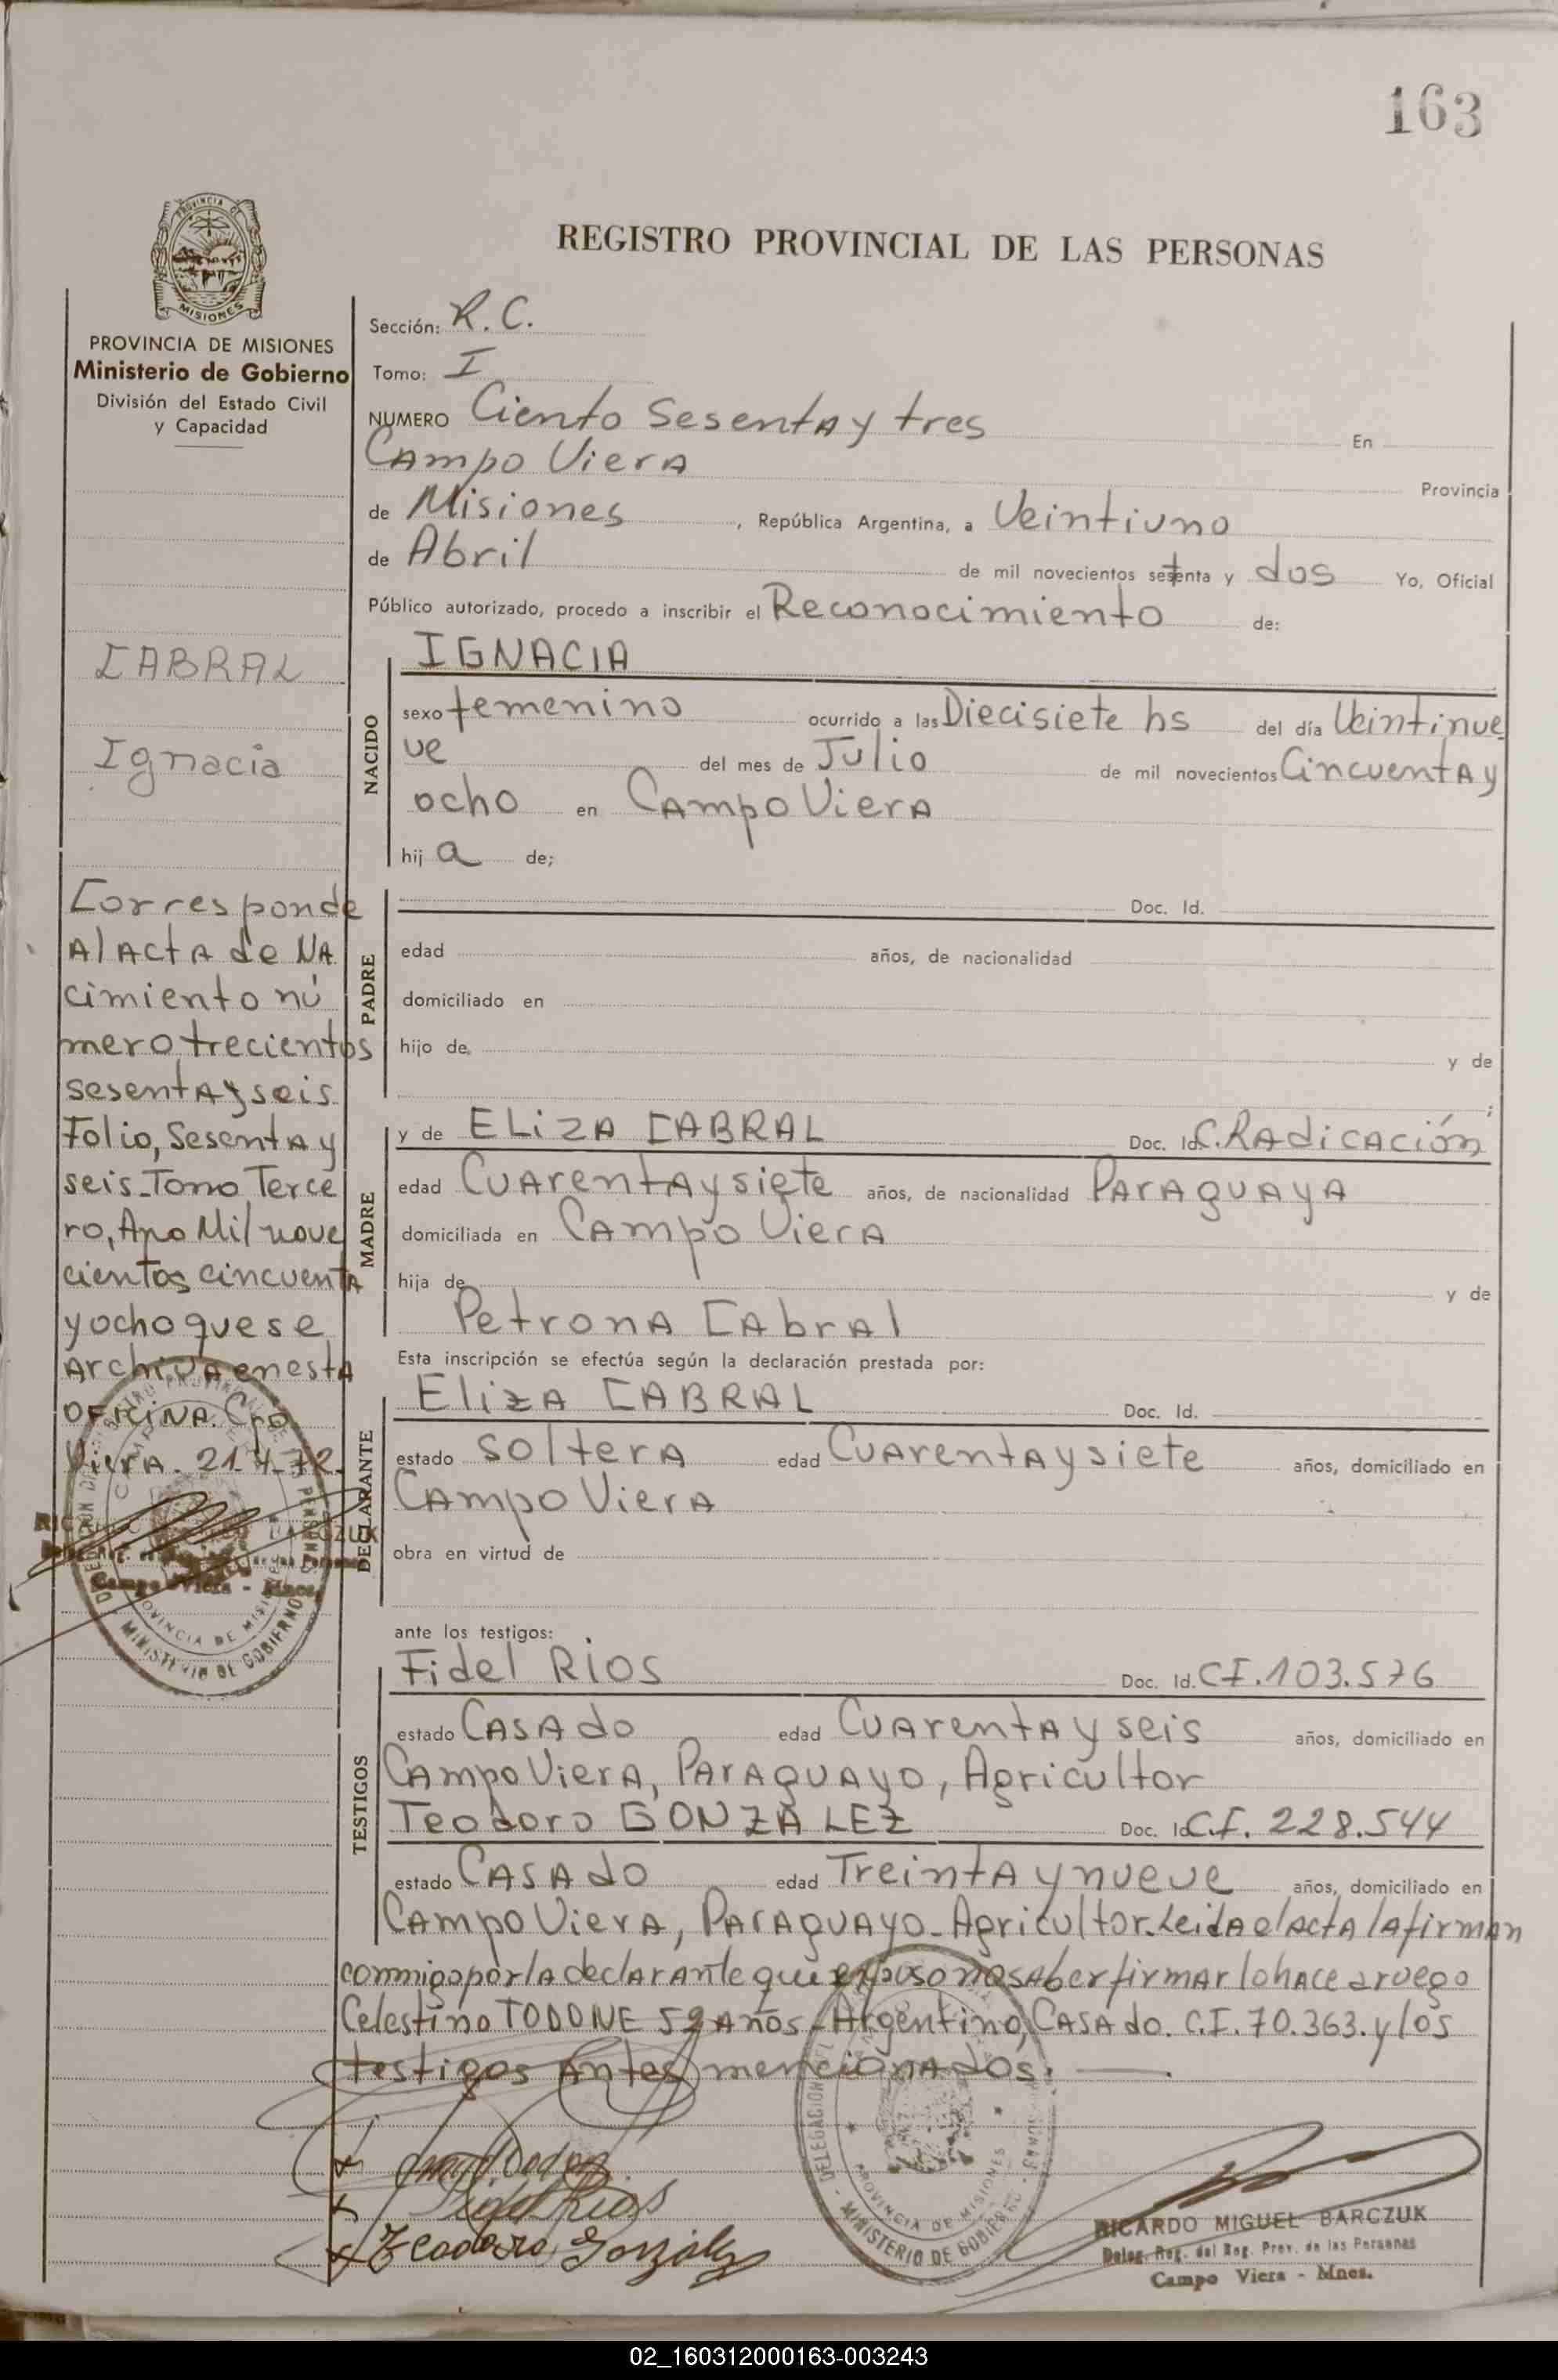 163
PROVINCIA DE
MISIONES
REGISTRO PROVINCIAL DE LAS PERSONAS
PROVINCIA DE MISIONES
Ministerio de Gobierno
División del Estado Civil
y Capacidad
CABRAL
Ignacia
Corresponde
Al Acta de NA
cimiento nú
mero trecientos
sesentA y seis
Folio, Sesenta y
seis_Tomo Terce
ro, Año Mil nove
cientos cincuenta
y ocho que se
Archiva en esta
OFICINA. Cpo
Viera. 21-4-72.
Campo Viera - Mnes.
MINISTERIO DE GOBIERNO
PROVINCIA DE MISIONES
Sección: R.C.
Tomo: I
NUMERO Ciento Sesenta y tres En
Campo Viera Provincia
de Misiones, República Argentina, a Veintiuno
de Abril de mil novecientos setenta y dos Yo, Oficial
Público autorizado, procedo a inscribir el Reconocimiento de:
NACIDO
IGNACIA
sexo femenino ocurrido a las Diecisiete hs del día Veintinue
ve del mes de Julio de mil novecientos Cincuenta y
ocho en Campo Viera
hij a de;
PADRE
Doc. Id.
edad años, de nacionalidad
domiciliado en
hijo de y de
;
MADRE
y de ELiZA CABRAL Doc. Id. C.Radicación
edad Cuarenta y siete años, de nacionalidad Paraguaya
domiciliada en Campo Viera
hija de y de
Petrona Cabral
Esta inscripción se efectúa según la declaración prestada por:
DECLARANTE
Eliza CABRAL Doc. Id.
estado soltera edad Cuarenta y siete años, domiciliado en
Campo Viera
obra en virtud de
ante los testigos:
TESTIGOS
Fidel Rios Doc. Id. CI.103.576
estado Casado edad Cuarenta y seis años, domiciliado en
Campo Viera, Paraguayo, Agricultor
Teodoro GONZALEZ Doc. Id. C.I. 228.544
estado Casado edad Treinta y nueve años, domiciliado en
Campo Viera, Paraguayo_Agricultor. Leida el acta la firman
conmigo por la declarante que expuso no saber firmar lo hace a ruego
Celestino TODONE 59 Años_Argentino, Casado. C.I. 70.363. y los
testigos antes mencionados.
Fidel Rios
Teodoro González
MINISTERIO DE GOBIERNO
PROVINCIA DE MISIONES
RICARDO MIGUEL BARCZUK
Deleg. Reg. del Reg. Prov. de las Personas
Campo Viera - Mnes.
02_160312000163-003243